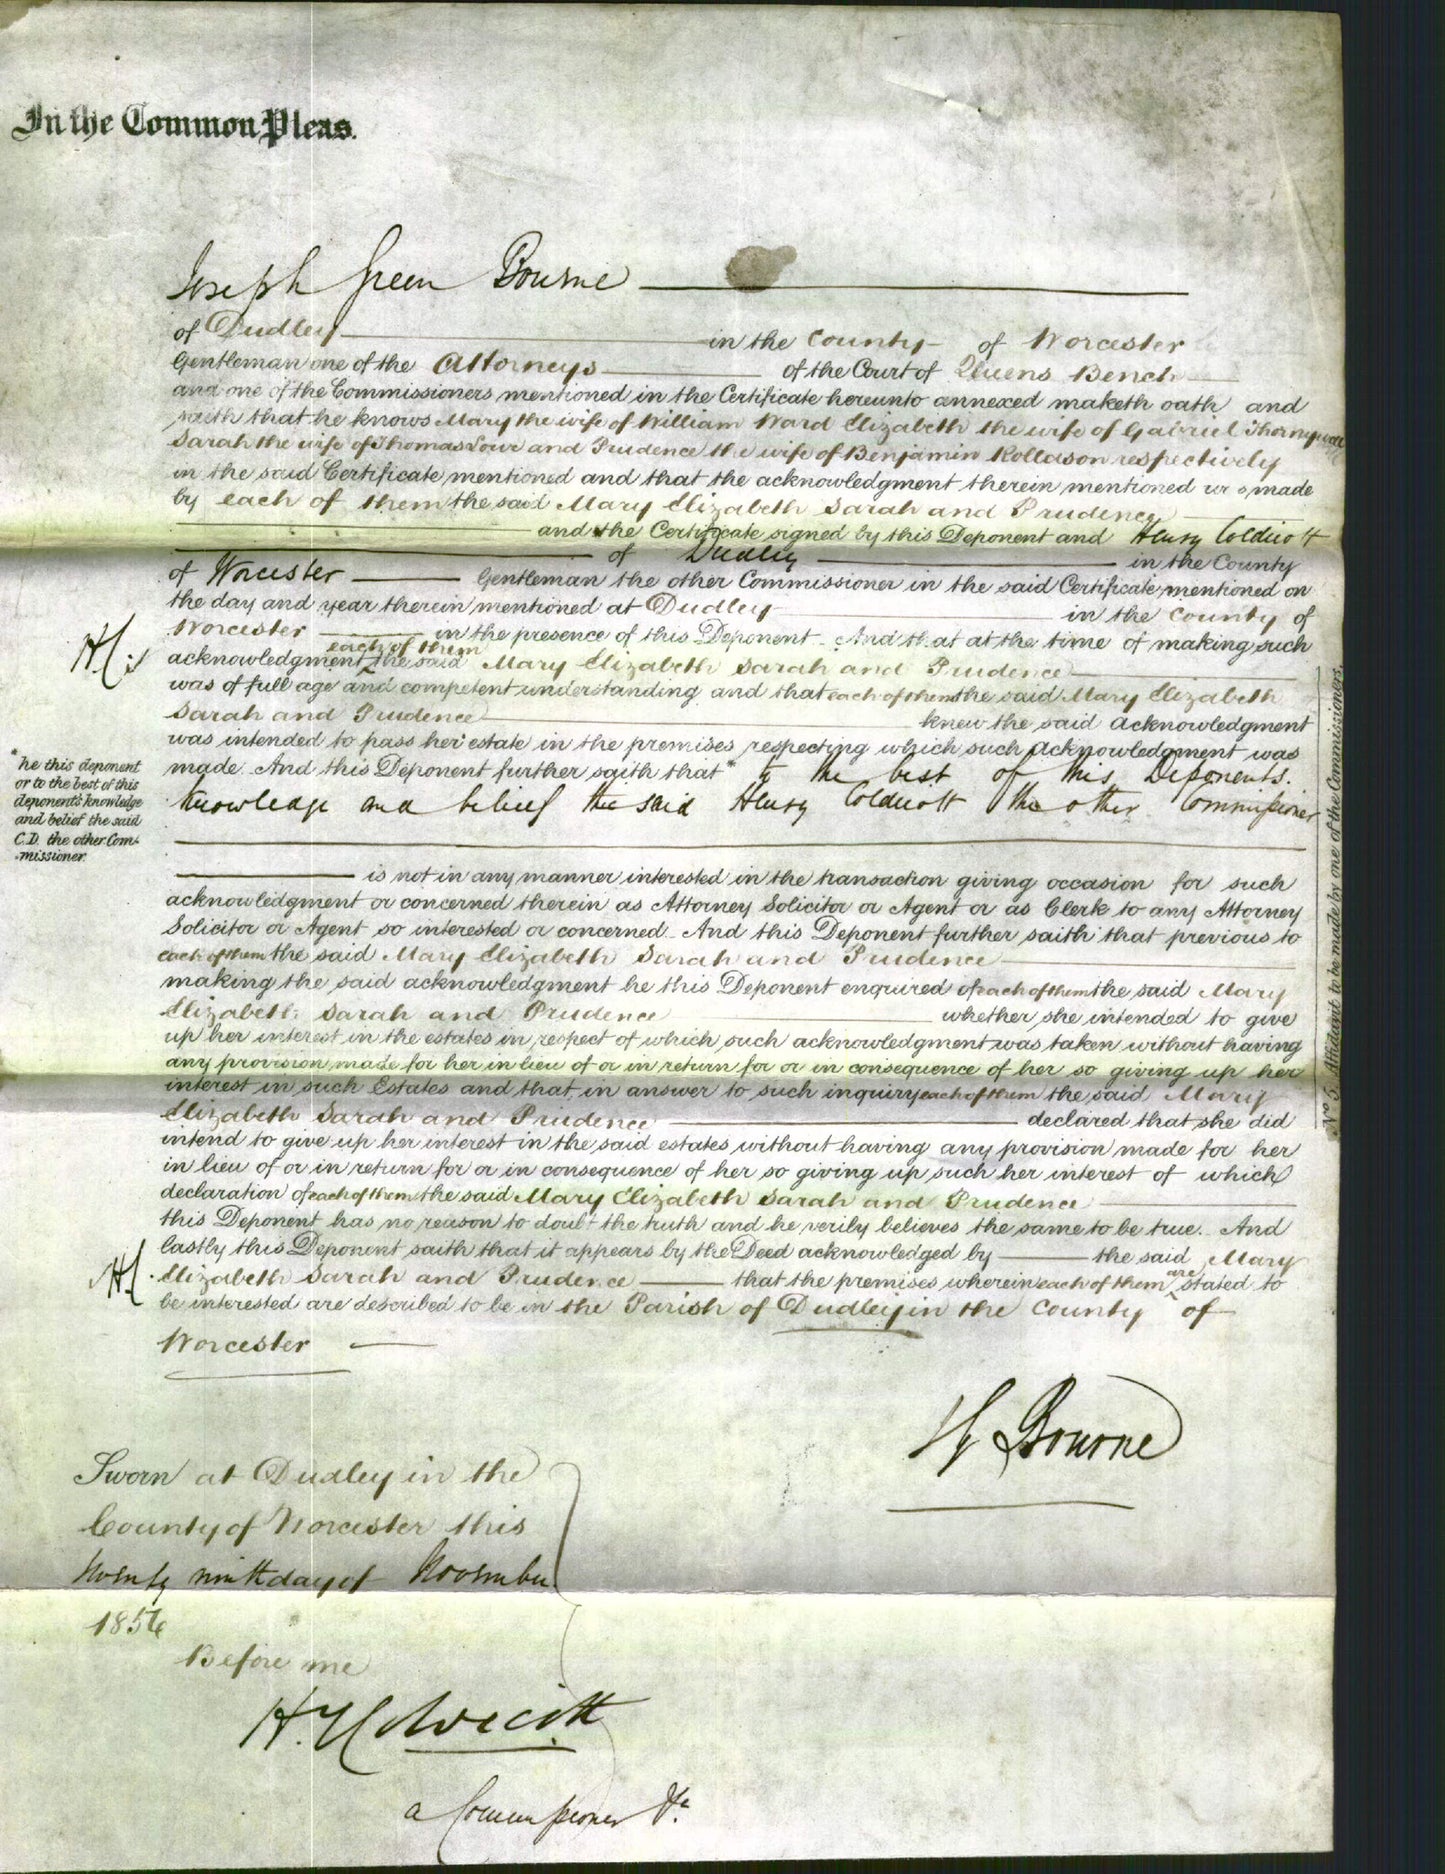 In the Common Pleas.
Joseph Green Bourne
of Dudley in the County of Worcester
Gentleman one of the Attorneys of the Court of Queens Bench
and one of the Commissioners mentioned in the Certificate hereunto annexed maketh oath and
saith that he knows Mary the wife of William Ward Elizabeth the wife of Gabriel
Sarah the wife of Thomas Lowe and Prudence the wife of Benjamin Rollason respectively
in the said Certificate mentioned and that the acknowledgment therein mentioned was made
by each of them the said Mary Elizabeth Sarah and Prudence
and the Certificate signed by this Deponent and Henry Coldicott
of Dudley in the County
of Worcester Gentleman the other Commissioner in the said Certificate mentioned on
the day and year therein mentioned at Dudley in the County of
Worcester in the presence of this Deponent And that at the time of making such
each of them
acknowledgment the said Mary Elizabeth Sarah and Prudence
was of full age and competent understanding and that each of them the said Mary Elizabeth
Sarah and Prudence knew the said acknowledgment
was intended to pass her estate in the premises respecting which such acknowledgment was
made. And this Deponent further saith that* to the best of this Deponents
knowledge and belief the said Henry Coldicott the other Commissioner
* he this deponent
or to the best of this
deponent's knowledge
and belief the said
C.D. the other Com-
-missioner.
is not in any manner interested in the transaction giving occasion for such
acknowledgment or concerned therein as Attorney Solicitor or Agent or as Clerk to any Attorney
Solicitor or Agent so interested or concerned And this Deponent further saith that previous to
each of them the said Mary Elizabeth Sarah and Prudence
making the said acknowledgment he this Deponent enquired of each of them the said Mary
Elizabeth Sarah and Prudence whether she intended to give
up her interest in the estates in respect of which such acknowledgment was taken without having
any provision made for her in lieu of or in return for or in consequence of her so giving up her
interest in such Estates and that in answer to such inquiry each of them the said Mary
Elizabeth Sarah and Prudence declared that she did
intend to give up her interest in the said estates without having any provision made for her
in lieu of or in return for or in consequence of her so giving up such her interest of which
declaration of each of them the said Mary Elizabeth Sarah and Prudence
this Deponent has no reason to doubt the truth and he verily believes the same to be true. And
lastly this Deponent saith that it appears by the Deed acknowledged by the said Mary
Elizabeth Sarah and Prudence that the premises wherein each of them are stated to
be interested are described to be in the Parish of Dudley in the County of
Worcester
Bourne
Sworn at Dudley in the
County of Worcester this
twenty ninth day of November
1856
Before me
a Commissioner &c
No. 5. Affidavit to be made by one of the Commissioners.